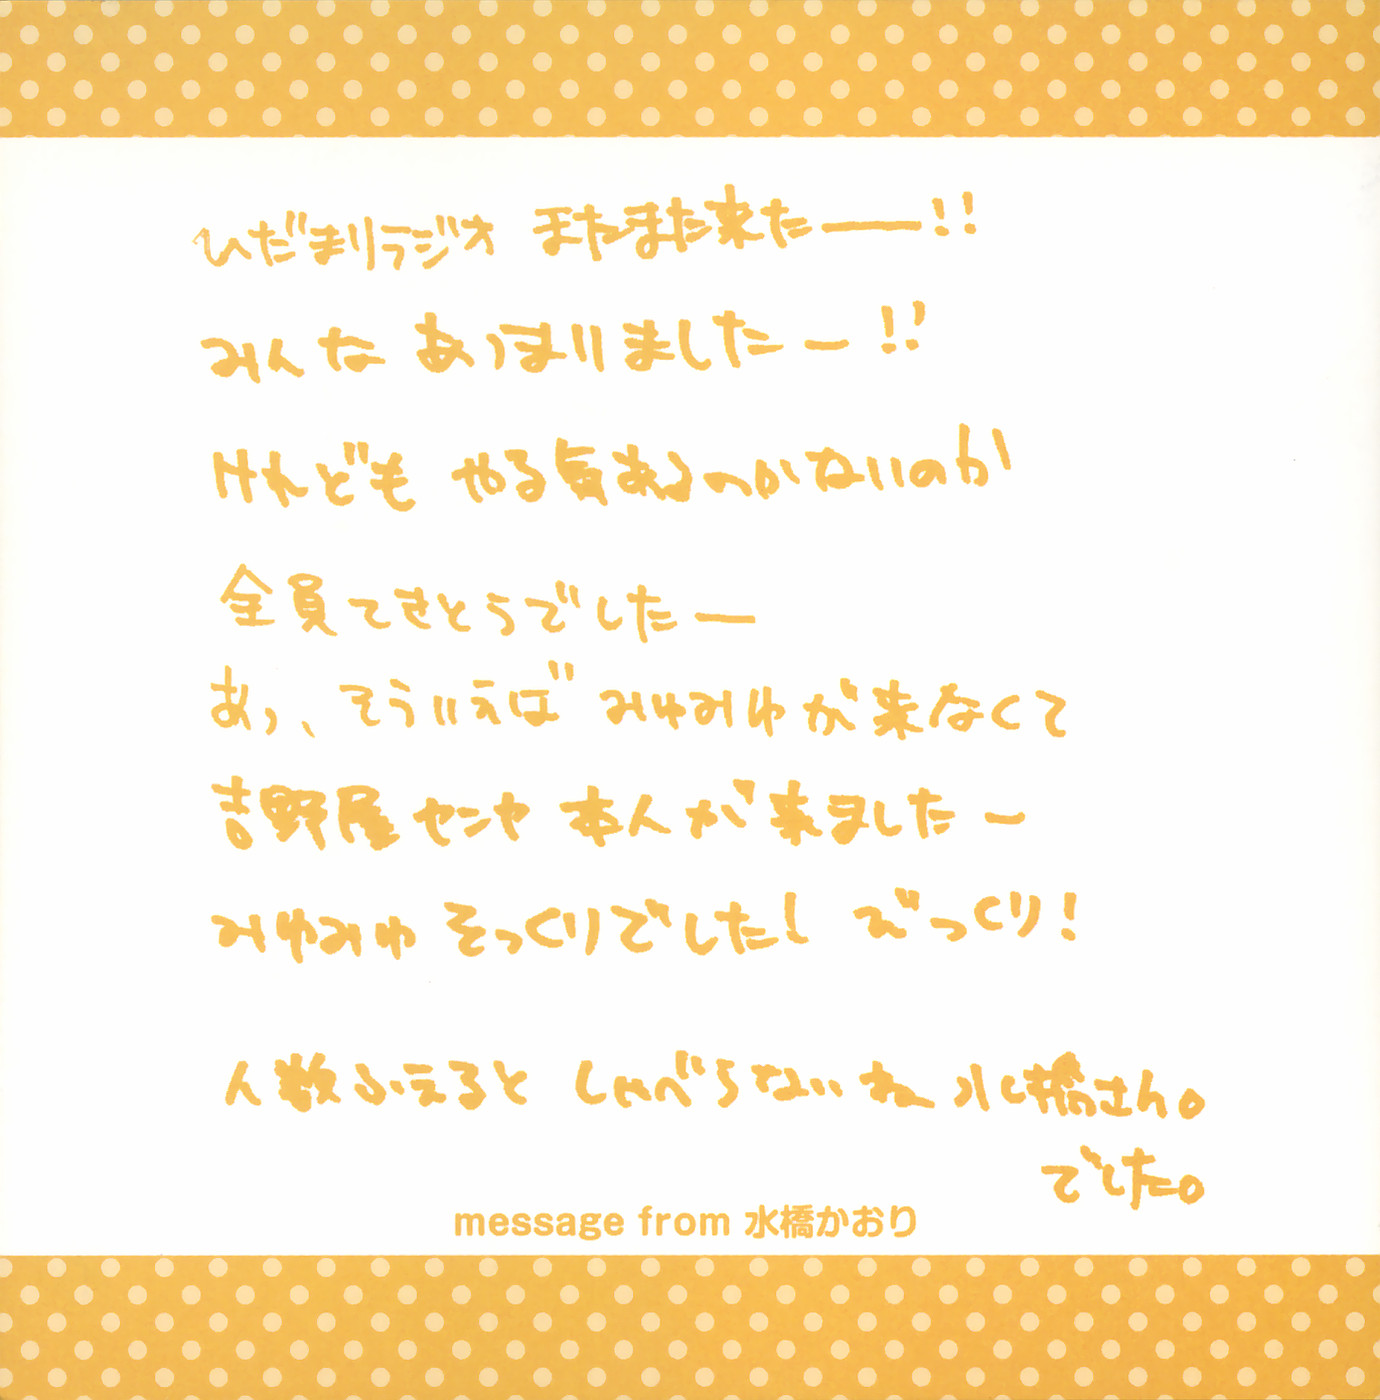 ひだまりラジオ またまた来たー!!
みんな あつまりましたー!!
けれども やる気あるのかないのか
全員てきとうでしたー
あっ、そういえば みゆみゆが来なくて
吉野屋センセ 本人が来ましたー
みゆみゆ そっくりでした! びっくり!
人数ふえると しゃべらないね 水橋さん。
でした。
message from 水橋かおり